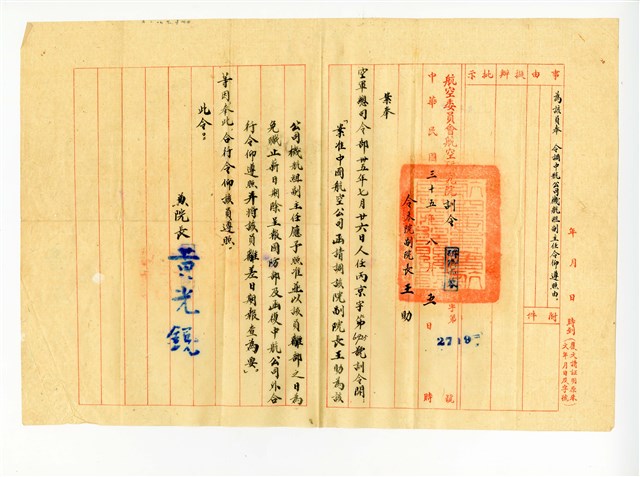 事由 擬辦 批示
為該員奉 令調中航公司機航組副主任令仰遵照由
附件
年 月 日 時到
航空委員會航空 院訓令
中華民國三十五年八 五日 時
字第2719號
令本院副院長王助
案奉
空軍總司令部卅五年七月廿六日人仕丙京字第 號訓令開
「案准中國航空公司函請調該院副院長王助為該
公司機航組副主任應予照准並以該員離部之日為
免職止薪日期除呈報國防部及函復中航公司外合
行令仰遵照并將該員離差日期報查為要」
等因奉此合行令仰該員遵照
此令。
兼院長 黃光銳